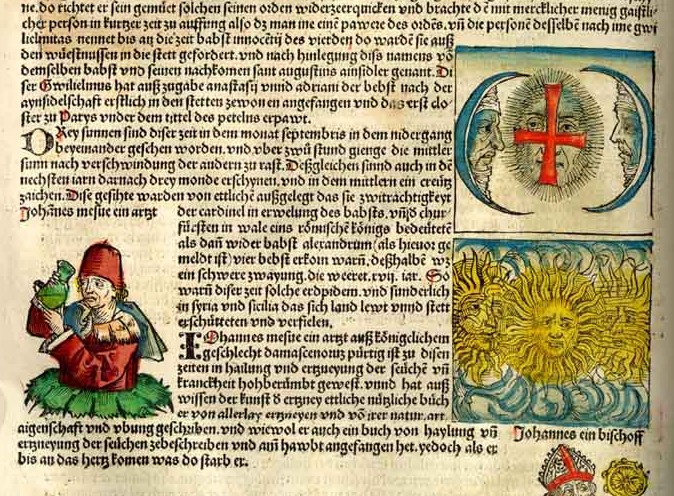 ne. do richtet er sein gemüt solchen seinen orden widerzeerquicken vnd brachte dē mit mercklicher menig gaistli-
cher person in kurtzer zeit zu auffnng also dz man ine einē pawere des ordēs. vñ die personē desselben nach ime gwi
lielmitas nennet bis an die zeit babst innocētij des vierden do wardē sie auß
den wüestnussen in die stett gefordert. vnd nach hinlegung diss namens võ
demselben babst vnd seinen nachkomen sant augustins ainsidler genant. Di
ser Gwilielmus hat auß zugabe anastasij vnnd adriani der bebst nach der
aynsidelschaft erstlich in den stetten zewonen angefangen vnd das erst clo-
ster zu Parys vnder dem tittel des petelns erpawt.
DRey sunnen sind diser zeit in dem monat septembris in dem nidergang
beyeinander gesehen worden. vnd vber zwů stund gienge die mittler
sunn nach verschwindung der andern zu rast. Deßgleichen sinnd auch in dē
nechsten iarn darnach drey monde erschynen. vnd in dem mittlern ein creütz
zaichen. Dise gesihte warden von ettlichē außgelegt das sie zwitrachtigkeyt
Johānes mesue ein artzt
der cardinel in erwelung des babsts. vñd chur
fürsten in wale eins römischē königs bedeütetē
als dañ wider babst alexandrum (als hieuor ge
meldt ist) vier bebst erkorn warñ. deßhalbē wz
ein schwere zwayung. die weeret .xvij. iar. So
warñ diser zeit solche erdpidem. vnd sunderlich
in syria vnd sicilia das sich land lewt vnnd stett
erschütteten vnd verfielen.
IOhannes mesue ein artzt auß königlichem
geschlecht damascenorum pürtig ist zu disen
zeiten in hailung vnd ertzneyung der seüchē vñ
kranckheit hohberümbt gewest. vnnd hat auß
wissen der kunst d̕ ertzney ettliche nützliche büch
er von allerlay ertzneyen vnd võ irer natur. art.
aigenschaft vnd vbung geschriben. vnd wiewol er auch ein buch von haylung vñ
ertzneyung der seüchen zebeschreiben vnd am hawbt angefangen het. yedoch als er
bis an das hertz komen was do starb er.
Johannes ein bischoff